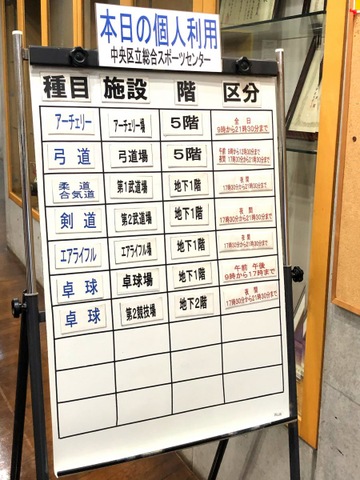 本日の個人利用
中央区立総合スポーツセンター
種目 施設 階 区分
アーチェリー アーチェリー場 5階 全日
9時から21時30分まで
弓道 弓道場 5階 午前 9時から12時30分まで
夜間 17時30分から21時30分まで
柔道
合気道 第1武道場 地下1階 夜間
17時30分から21時30分まで
剣道 第2武道場 地下1階 夜間
17時30分から21時30分まで
エアライフル エアライフル場 地下1階 夜間
17時30分から21時30分まで
卓球 卓球場 地下1階 午前 午後
9時から17時まで
卓球 第2競技場 地下2階 夜間
17時30分から21時30分まで